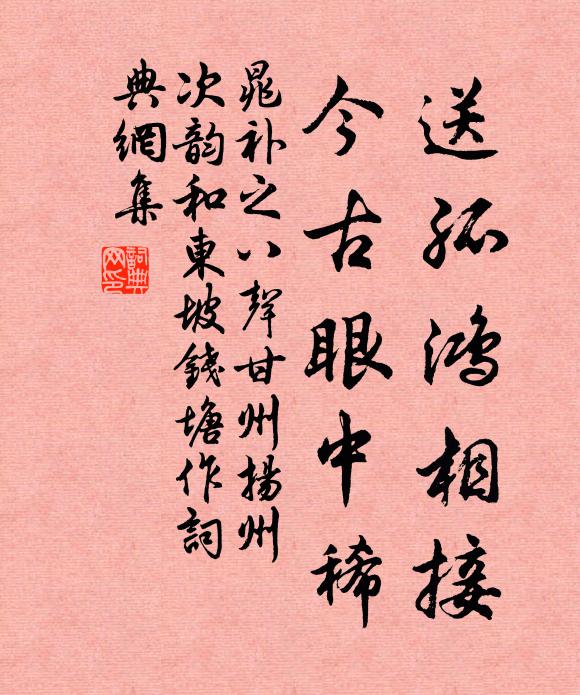 送孤鴻相接
今古眼中稀
晁补之八聲甘州揚州
次韵和東坡錢塘作詞
典網集
詞典網印